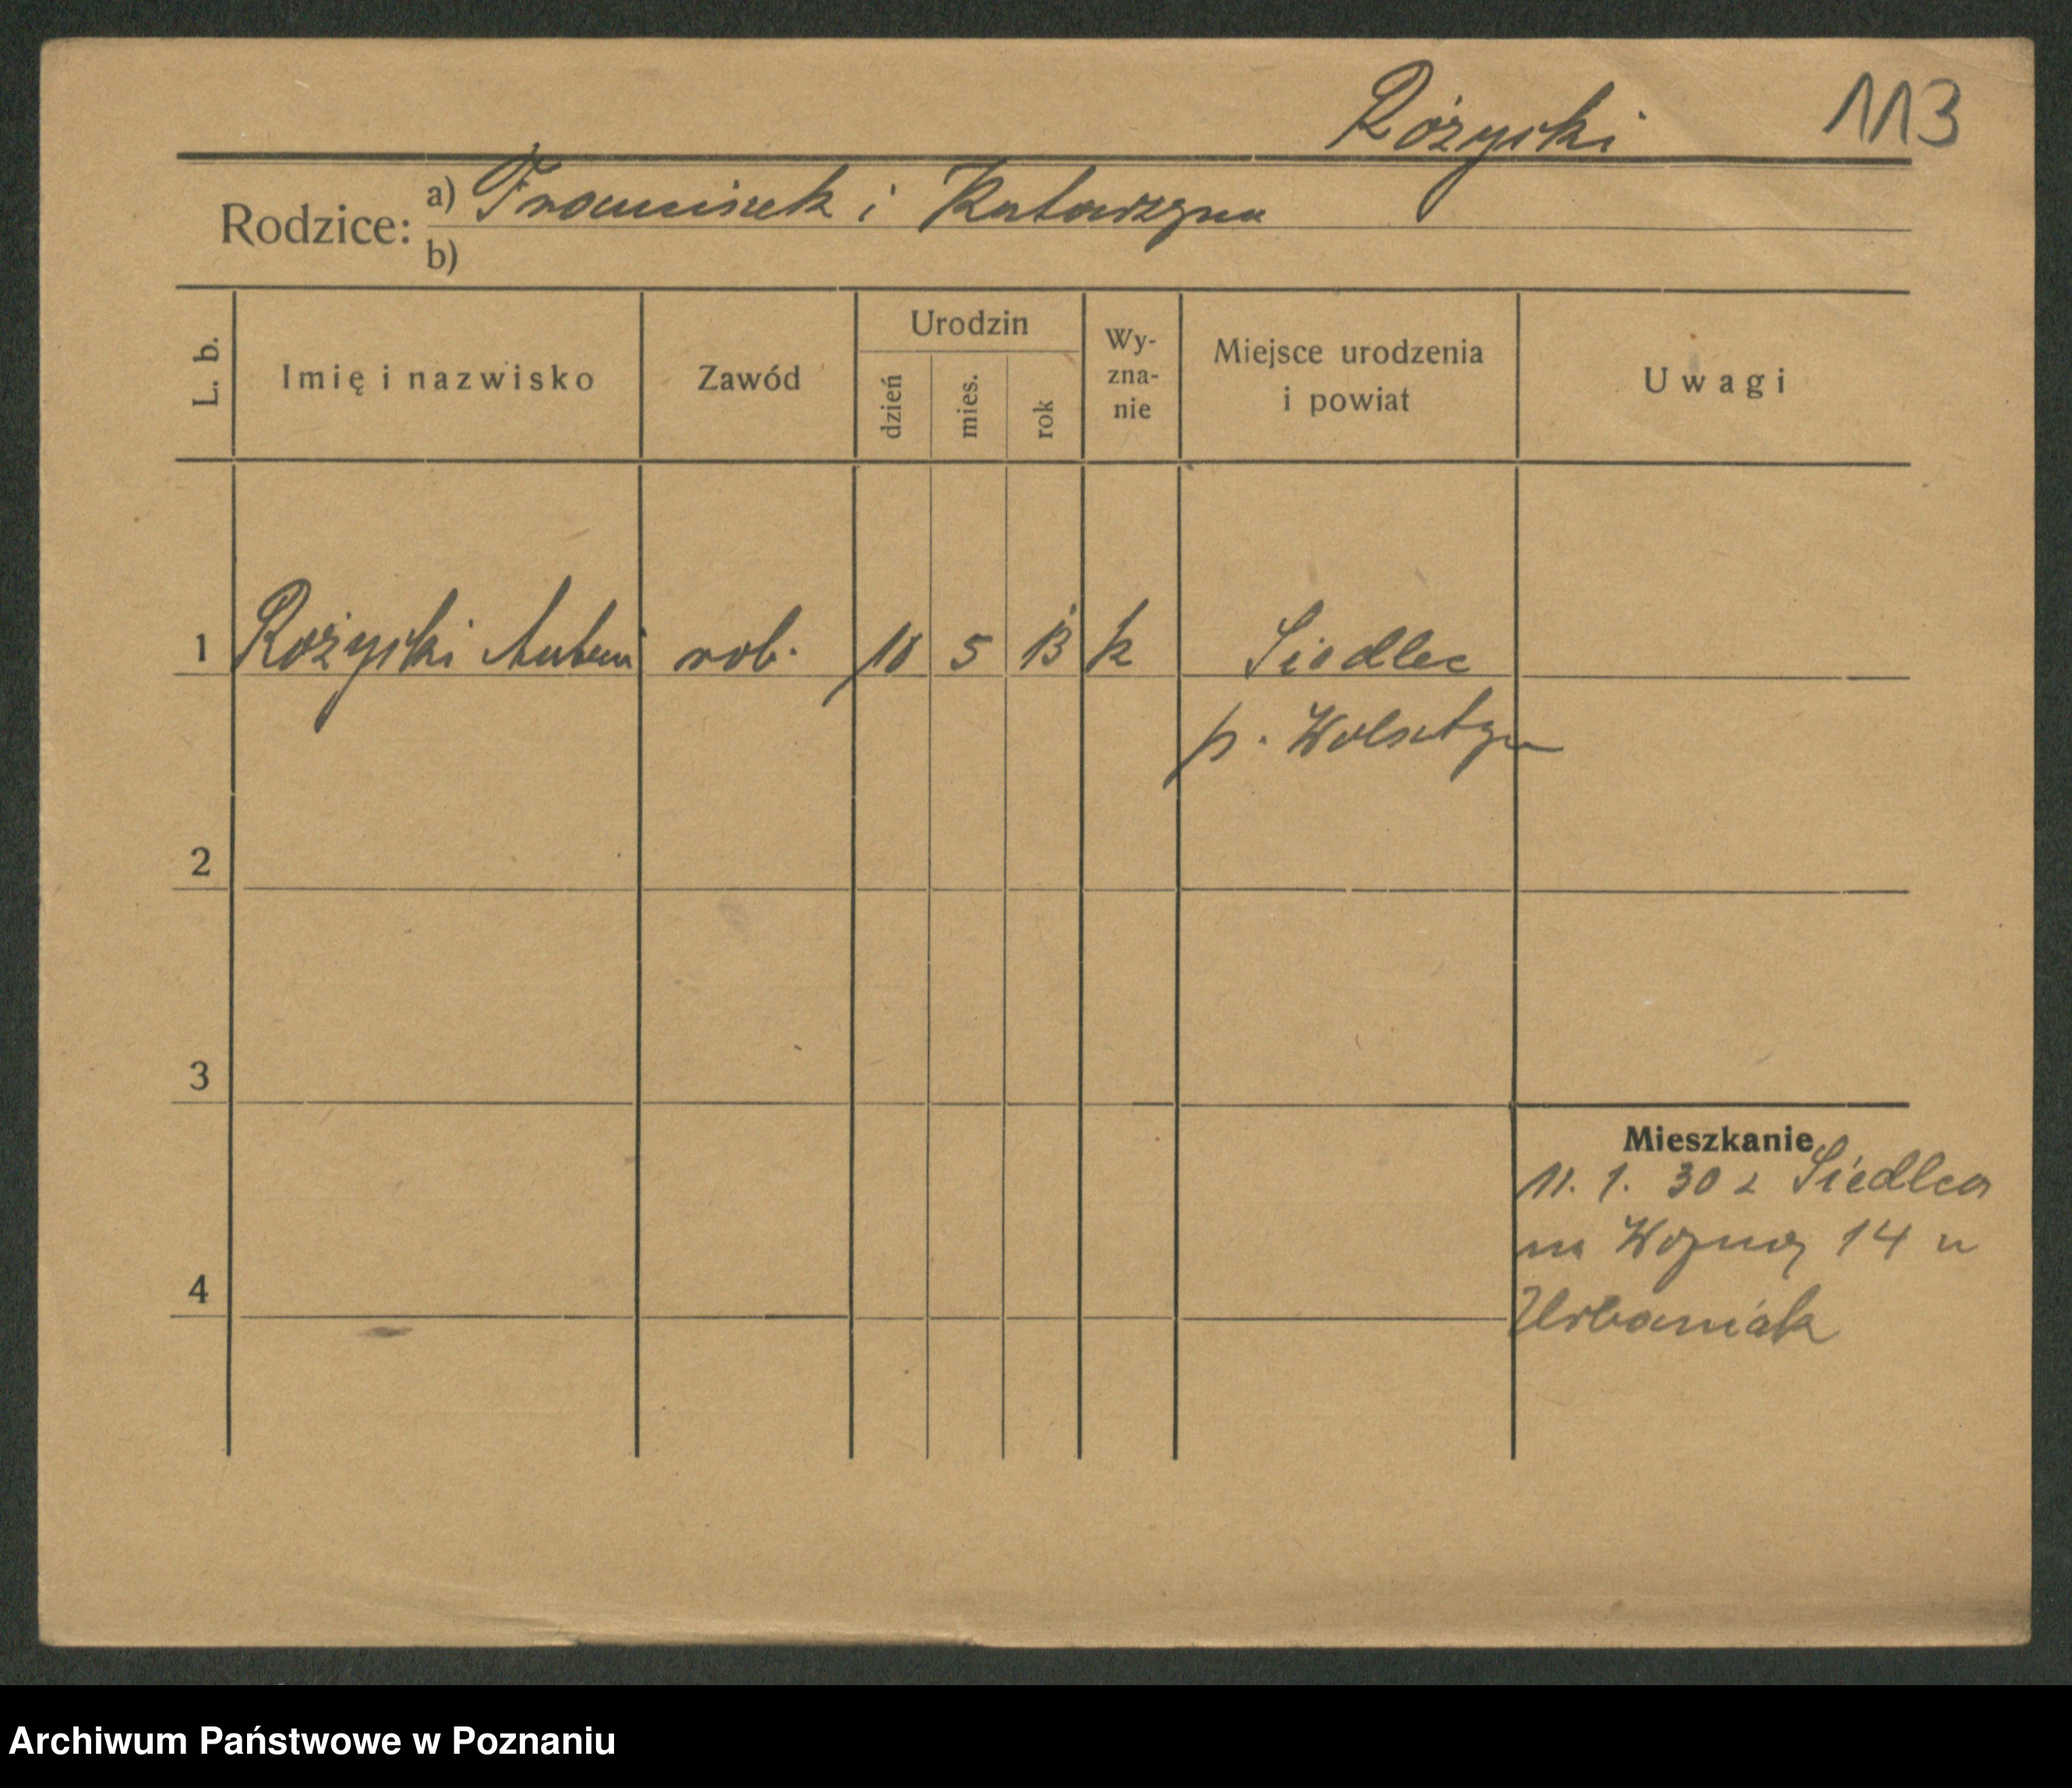 Różycki 113
Rodzice: a) Franciszek i Katarzyna
b)
L. b. Imię i nazwisko Zawód Urodzin dzień mies. rok Wy-zna-nie Miejsce urodzenia i powiat Uwagi
1 Różycki Antoni rob. 18 5 13 k Siedlec
p. Wolsztyn
2
3
Mieszkanie
11. 1. 30 z Siedlca
na Wozną 14 u
4
Urbaniak
Archiwum Państwowe w Poznaniu